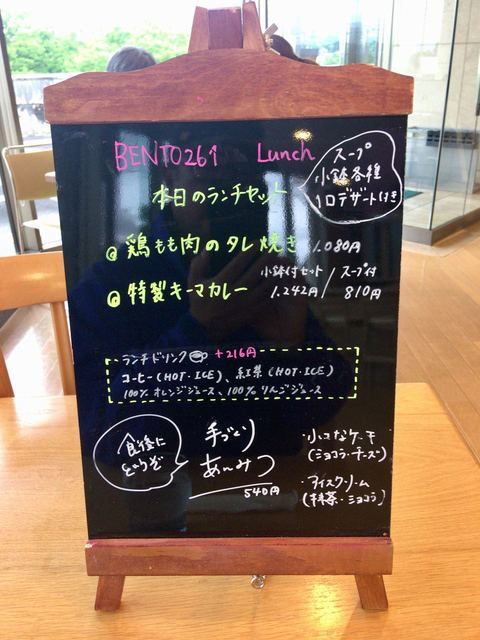 BENTO261 Lunch
本日のランチセット
スープ
小鉢各種
1口デザート付き
@ 鶏もも肉のタレ焼き 1.080円
@ 特製キーマカレー
小鉢付セット / スープ付
1.242円 / 810円
ランチドリンク +216円
コーヒー(HOT・ICE)、紅茶(HOT・ICE)
100%オレンジジュース、100%りんごジュース
食後に
どうぞ
手づくり
あんみつ
540円
・小さなケーキ
(ショコラ・チーズ)
・アイスクリーム
(抹茶・ショコラ)